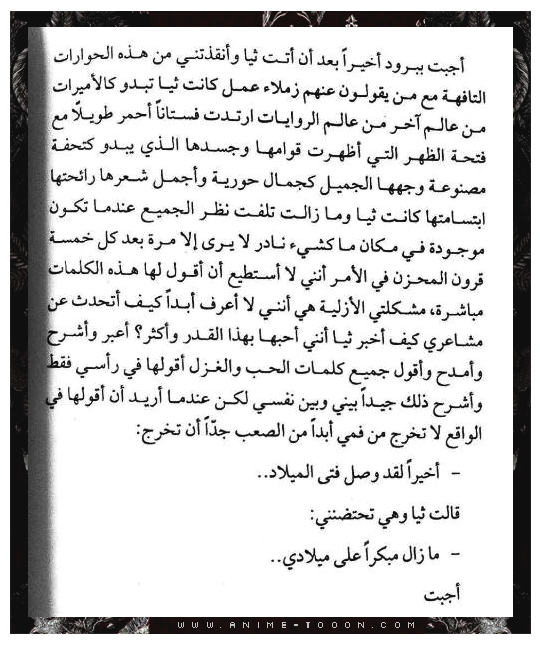 أجبت ببرود أخيراً بعد أن أتت ثيا وأنقذتني من هذه الحوارات
التافهة مع من يقولون عنهم زملاء عمل كانت ثيا تبدو كالأميرات
من عالم آخر من عالم الروايات ارتدت فستاناً أحمر طويلاً مع
فتحة الظهر التي أظهرت قوامها وجسدها الذي يبدو كتحفة
مصنوعة وجهها الجميل كجمال حورية وأجمل شعرها رائحتها
ابتسامتها كانت ثيا وما زالت تلفت نظر الجميع عندما تكون
موجودة في مكان ما كشيء نادر لا يرى إلا مرة بعد كل خمسة
قرون المحزن في الأمر أنني لا أستطيع أن أقول لها هذه الكلمات
مباشرة، مشكلتي الأزلية هي أنني لا أعرف أبداً كيف أتحدث عن
مشاعري كيف أخبر ثيا أنني أحبها بهذا القدر وأكثر؟ أعبر وأشرح
وأمدح وأقول جميع كلمات الحب والغزل أقولها في رأسي فقط
وأشرح ذلك جيداً بيني وبين نفسي لكن عندما أريد أن أقولها في
الواقع لا تخرج من فمي أبداً من الصعب جدّاً أن تخرج:
- أخيراً لقد وصل فتى الميلاد..
قالت ثيا وهي تحتضنني:
- ما زال مبكراً على ميلادي..
أجبت
WWW.ANIME-TOOON.COM